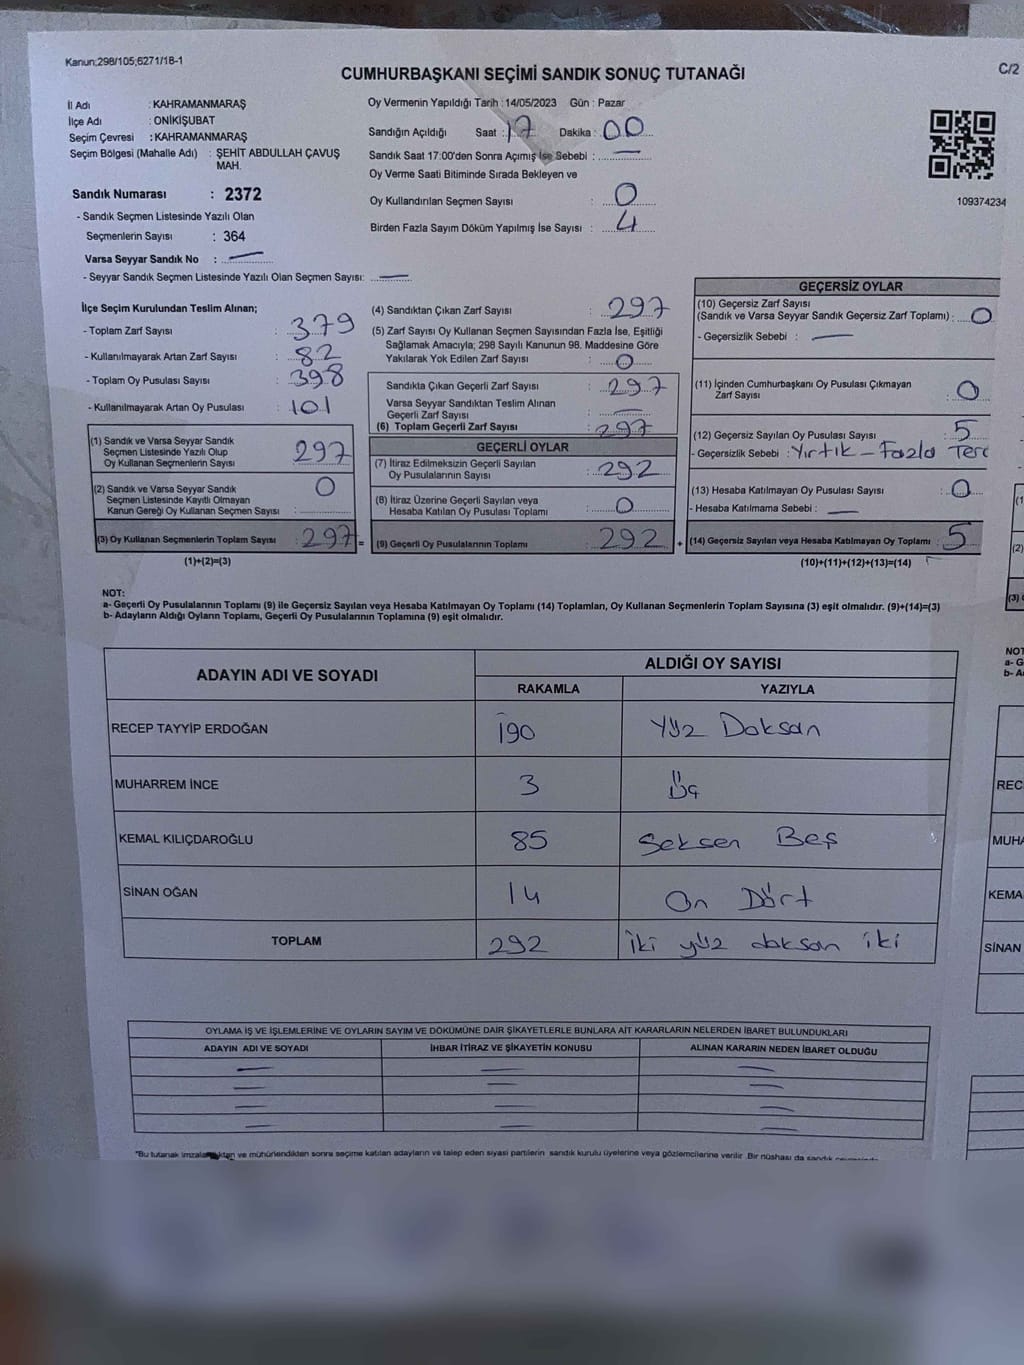 Kanun;298/105;6271/18-1
C/2
CUMHURBAŞKANI SEÇİMİ SANDIK SONUÇ TUTANAĞI
İl Adı : KAHRAMANMARAŞ
İlçe Adı : ONİKİŞUBAT
Seçim Çevresi : KAHRAMANMARAŞ
Seçim Bölgesi (Mahalle Adı) : ŞEHİT ABDULLAH ÇAVUŞ MAH.
Sandık Numarası : 2372
- Sandık Seçmen Listesinde Yazılı Olan
Seçmenlerin Sayısı : 364
Varsa Seyyar Sandık No : —
- Seyyar Sandık Seçmen Listesinde Yazılı Olan Seçmen Sayısı: —
Oy Vermenin Yapıldığı Tarih : 14/05/2023 Gün : Pazar
Sandığın Açıldığı Saat : 17 Dakika : 00
Sandık Saat 17:00'den Sonra Açımış İse Sebebi : —
Oy Verme Saati Bitiminde Sırada Bekleyen ve
Oy Kullandırılan Seçmen Sayısı : 0
Birden Fazla Sayım Döküm Yapılmış İse Sayısı : 4
109374234
İlçe Seçim Kurulundan Teslim Alınan;
- Toplam Zarf Sayısı : 379
- Kullanılmayarak Artan Zarf Sayısı : 82
- Toplam Oy Pusulası Sayısı : 398
- Kullanılmayarak Artan Oy Pusulası : 101
(1) Sandık ve Varsa Seyyar Sandık
Seçmen Listesinde Yazılı Olup
Oy Kullanan Seçmenlerin Sayısı 297
(2) Sandık ve Varsa Seyyar Sandık
Seçmen Listesinde Kayıtlı Olmayan
Kanun Gereği Oy Kullanan Seçmen Sayısı : 0
(3) Oy Kullanan Seçmenlerin Toplam Sayısı : 297 =
(1)+(2)=(3)
(4) Sandıktan Çıkan Zarf Sayısı : 297
(5) Zarf Sayısı Oy Kullanan Seçmen Sayısından Fazla İse, Eşitliği
Sağlamak Amacıyla; 298 Sayılı Kanunun 98. Maddesine Göre
Yakılarak Yok Edilen Zarf Sayısı : 0
Sandıkta Çıkan Geçerli Zarf Sayısı : 297
Varsa Seyyar Sandıktan Teslim Alınan
Geçerli Zarf Sayısı : —
(6) Toplam Geçerli Zarf Sayısı : 297
GEÇERLİ OYLAR
(7) İtiraz Edilmeksizin Geçerli Sayılan
Oy Pusulalarının Sayısı : 292
(8) İtiraz Üzerine Geçerli Sayılan veya
Hesaba Katılan Oy Pusulası Toplamı : 0
(9) Geçerli Oy Pusulalarının Toplamı : 292 +
GEÇERSİZ OYLAR
(10) Geçersiz Zarf Sayısı
(Sandık ve Varsa Seyyar Sandık Geçersiz Zarf Toplamı) : 0
- Geçersizlik Sebebi : —
(11) İçinden Cumhurbaşkanı Oy Pusulası Çıkmayan
Zarf Sayısı : 0
(12) Geçersiz Sayılan Oy Pusulası Sayısı : 5
- Geçersizlik Sebebi : Yırtık - Fazla Terc
(13) Hesaba Katılmayan Oy Pusulası Sayısı : 0
- Hesaba Katılmama Sebebi : —
(14) Geçersiz Sayılan veya Hesaba Katılmayan Oy Toplamı : 5
(10)+(11)+(12)+(13)=(14)
NOT:
a- Geçerli Oy Pusulalarının Toplamı (9) ile Geçersiz Sayılan veya Hesaba Katılmayan Oy Toplamı (14) Toplamları, Oy Kullanan Seçmenlerin Toplam Sayısına (3) eşit olmalıdır. (9)+(14)=(3)
b- Adayların Aldığı Oyların Toplamı, Geçerli Oy Pusulalarının Toplamına (9) eşit olmalıdır.
ADAYIN ADI VE SOYADI ALDIĞI OY SAYISI
RAKAMLA YAZIYLA
RECEP TAYYİP ERDOĞAN 190 Yüz Doksan
MUHARREM İNCE 3 Üç
KEMAL KILIÇDAROĞLU 85 Seksen Beş
SİNAN OĞAN 14 On Dört
TOPLAM 292 İki yüz doksan iki
OYLAMA İŞ VE İŞLEMLERİNE VE OYLARIN SAYIM VE DÖKÜMÜNE DAİR ŞİKAYETLERLE BUNLARA AİT KARARLARIN NELERDEN İBARET BULUNDUKLARI
ADAYIN ADI VE SOYADI İHBAR İTİRAZ VE ŞİKAYETİN KONUSU ALINAN KARARIN NEDEN İBARET OLDUĞU
— — —
— — —
— — —
— — —
ve mühürlendikten sonra seçime katılan adayların ve talep eden siyasi partilerin sandık kurulu üyelerine veya gözlemcilerine verilir. Bir nüshası da sandık
(1
(2)
(3)
NOT
a- G
b- A
REC
MUHA
KEMA
SİNAN